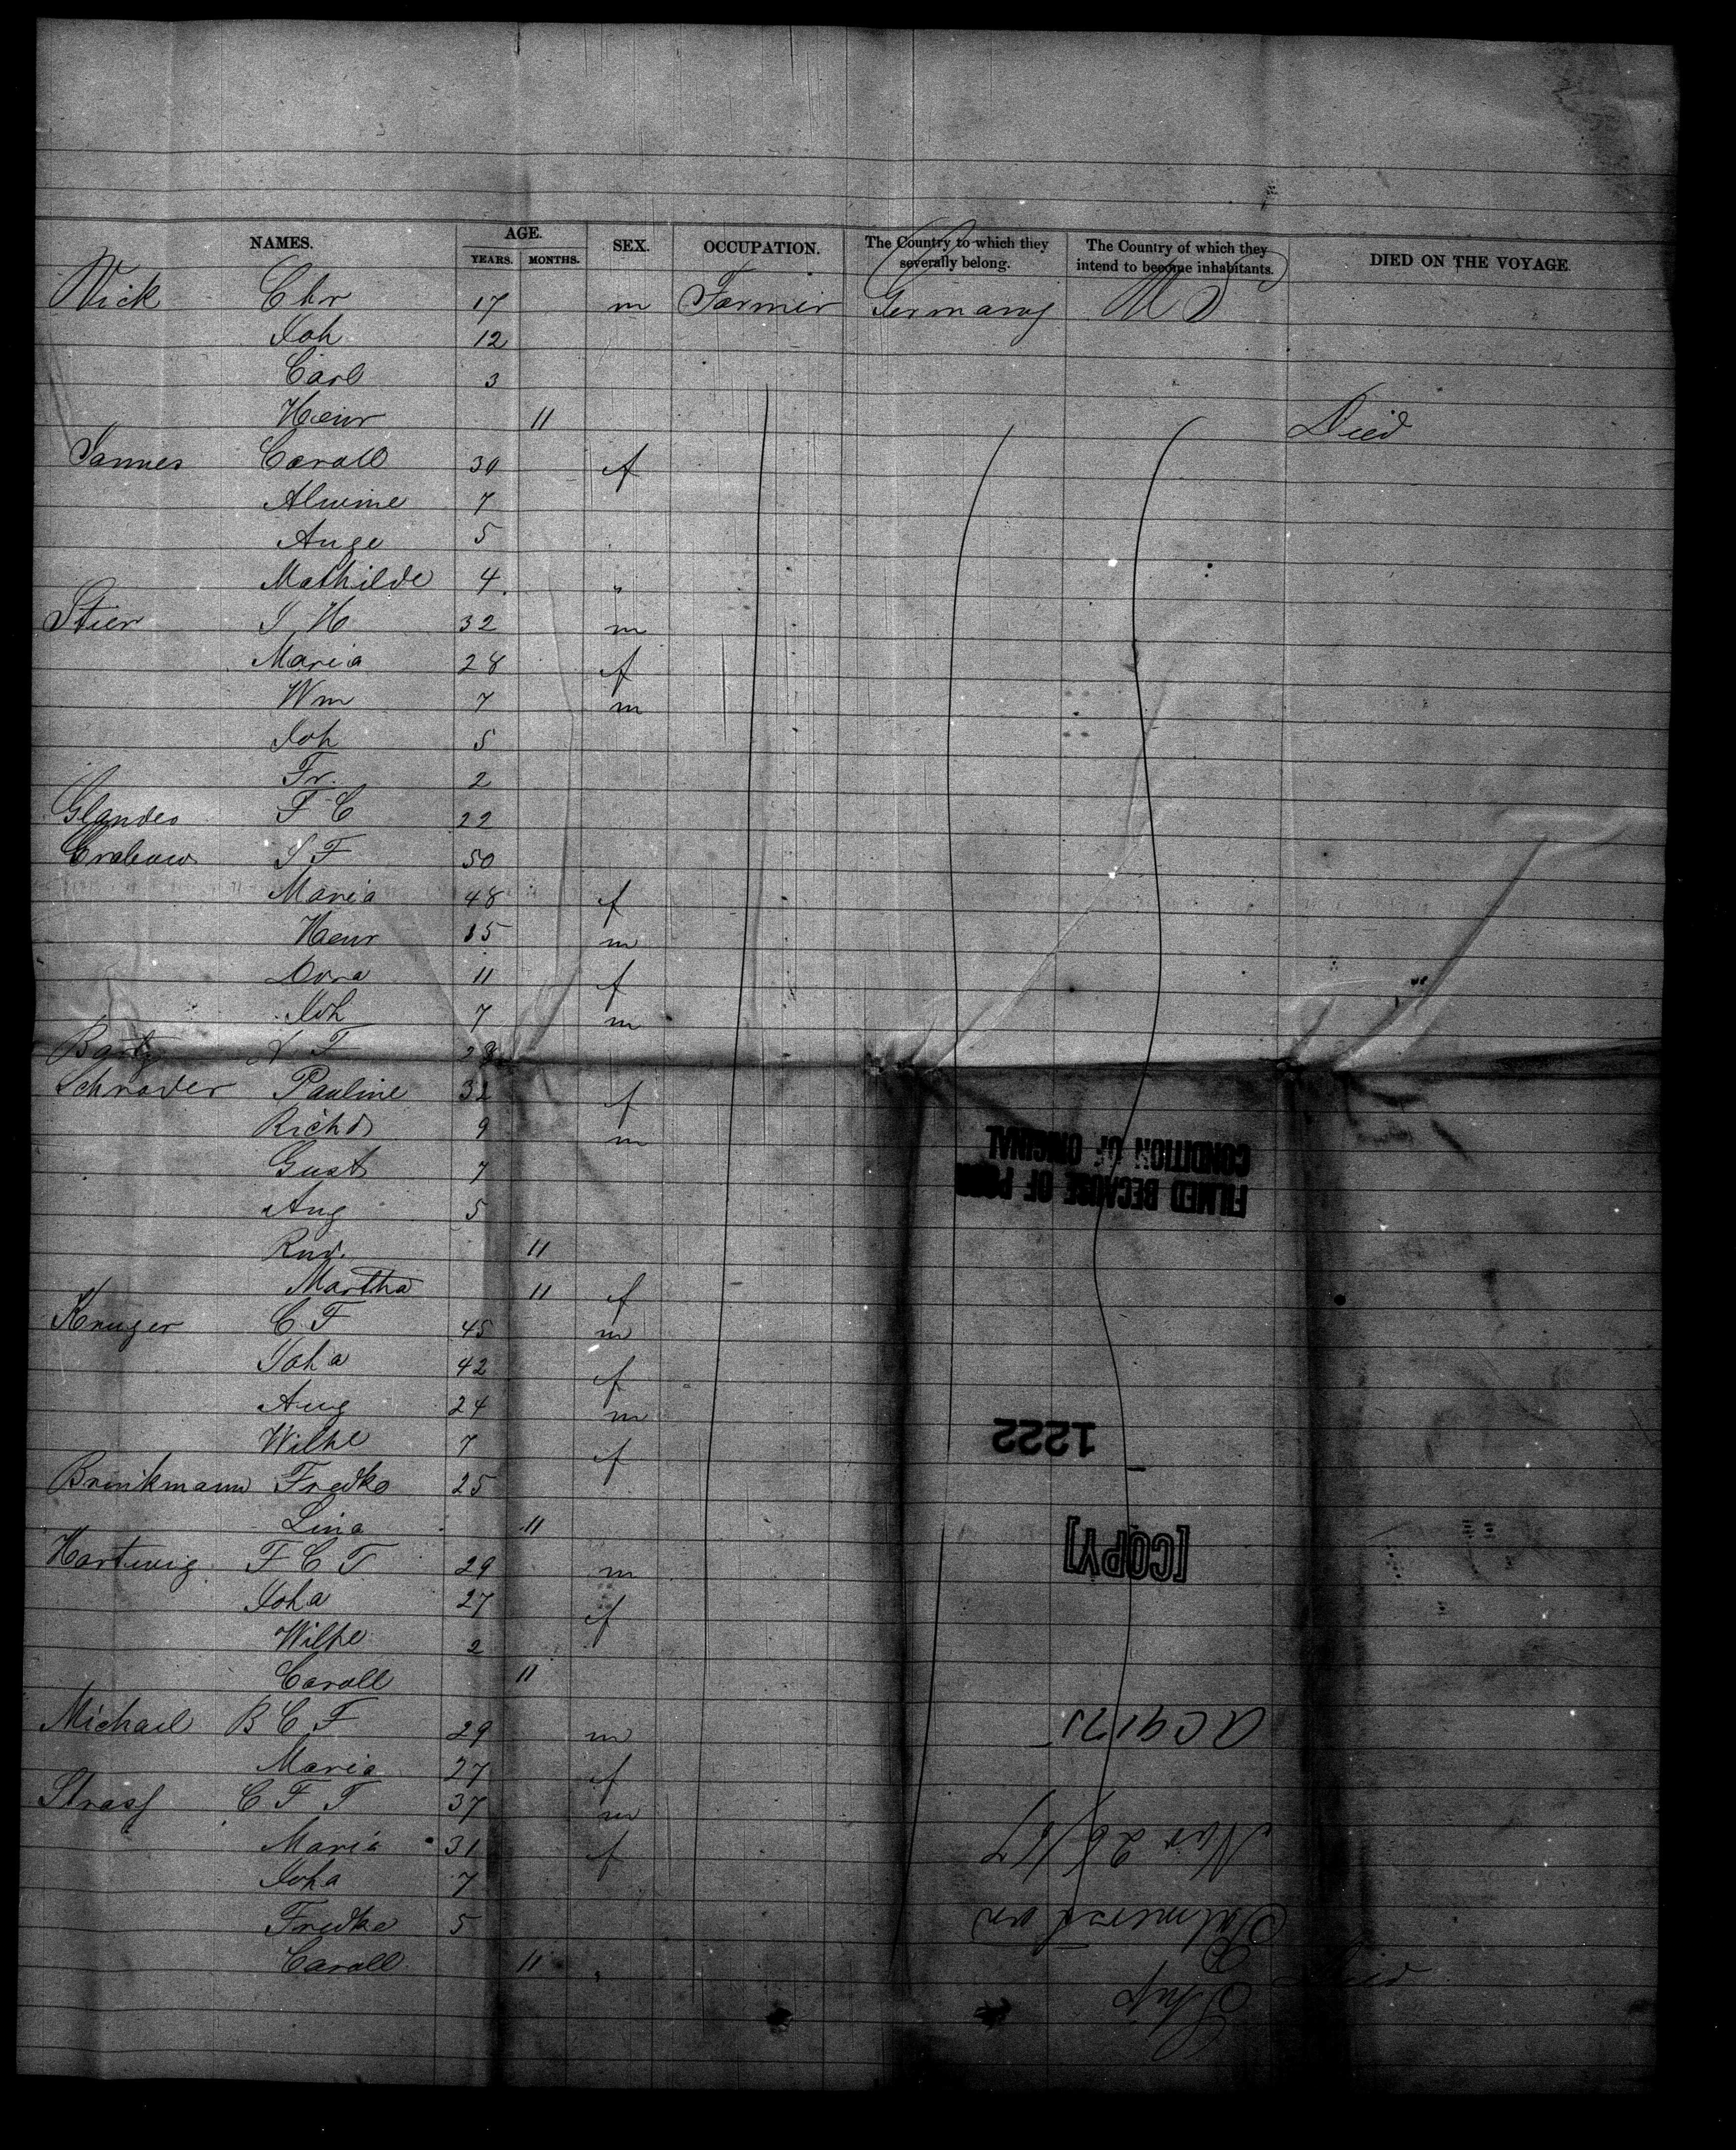 NAMES. AGE. SEX. OCCUPATION. The Country to which they severally belong. The Country of which they intend to become inhabitants. DIED ON THE VOYAGE.
YEARS. MONTHS.
Wick Chr 17 m Farmer Germany U S
Joh 12
Carl 3
Heinr 11 Died
Jannes Caroll 30 f
Alwine 7
Auge 5
Mathilde 4 "
Stier J H 32 m
Maria 28 f
Wm 7 m
Joh 5
Fr. 2
Glandes F C 22
Grabow J F 50
Maria 48 f
Heinr 15 m
Dora 11 f
Joh 7 m
F 28
Schrader Pauline 32 f
Richd 9 m
Gust 7
Aug 5
Rud. 11
Martha 11 f
Kruger C F 45 m
Joha 42 f
Aug 24 m
Wilhe 7 f
Brinkmann Fredke 25
Lina 11
Hartwig F C T 29 m
Joha 27 f
Wilhe 2
Caroll 11
Michael B C F 29 m
Maria 27 f
Strass C F T 37 m
Maria 31 f
Joha 7
Fredke 5
Caroll 11 Died
Ship
Palmerston
Nov 26/67
[COPY]
1222
FILMED BECAUSE OF POOR
CONDITION OF ORIGINAL